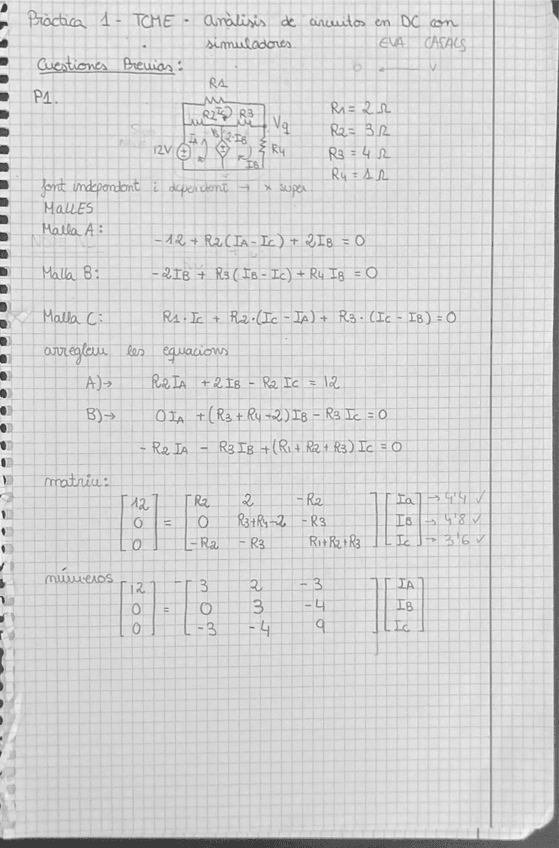 Pràctica 1 - TCME - Análisis de circuitos en DC con
simuladores. EVA CASALS
Cuestiones Previas:
P1.
R1
R2 Ic R3
Vq
12V IA 2·IB IB R4
R1 = 2 Ω
R2 = 3 Ω
R3 = 4 Ω
R4 = 1 Ω
font independent i dependent → x super
MALLES
Malla A: -12 + R2(IA - Ic) + 2IB = 0
Malla B: -2IB + R3(IB - Ic) + R4 IB = 0
Malla C: R1·Ic + R2·(Ic - IA) + R3·(Ic - IB) = 0
arreglem les equacions
A) → R2IA + 2IB - R2 Ic = 12
B) → 0IA + (R3 + R4 - 2)IB - R3 Ic = 0
- R2 IA - R3 IB + (R1 + R2 + R3) Ic = 0
matriu:
[12] = [R2 2 -R2] [Ia] → 4'4 ✓
[0] = [0 R3+R4-2 -R3] [IB] → 4'8 ✓
[0] = [-R2 -R3 R1+R2+R3] [Ic] → 3'6 ✓
números
[12] = [3 2 -3] [IA]
[0] = [0 3 -4] [IB]
[0] = [-3 -4 9] [Ic]